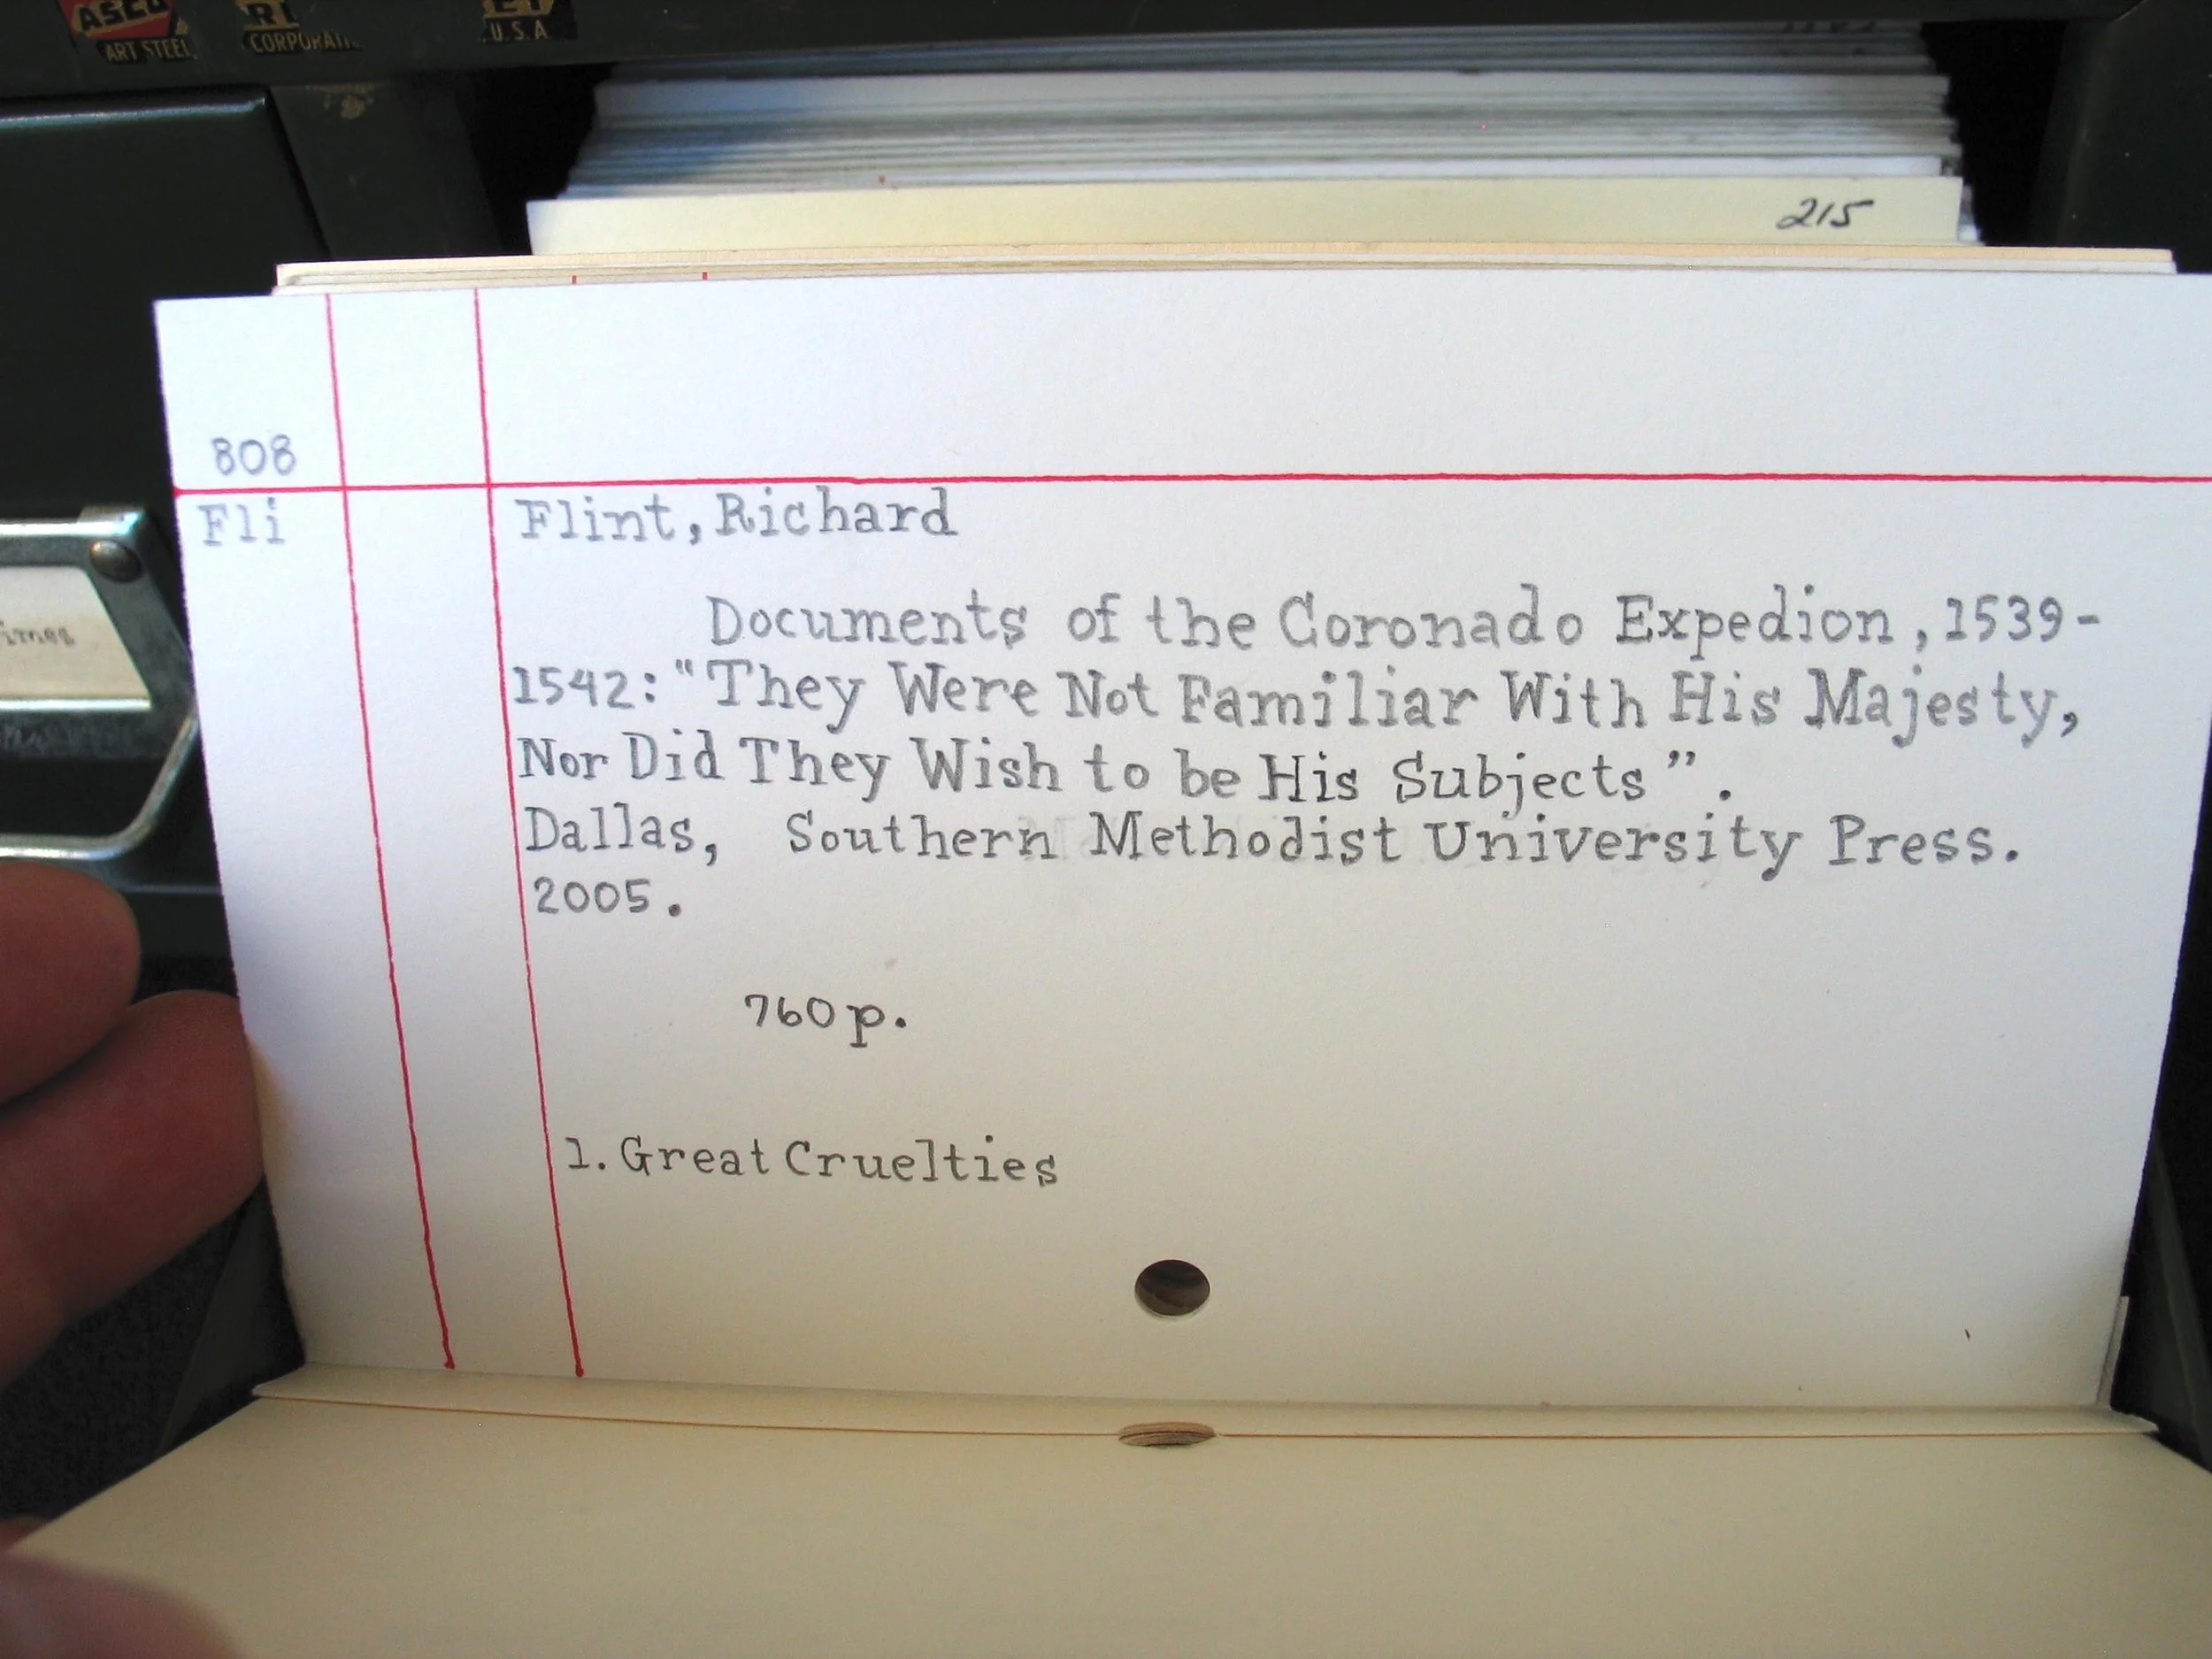 ASCO
ART STEEL
CORPORATI
U.S.A
215
808
Fli
Flint, Richard
Documents of the Coronado Expedion, 1539-
1542: "They Were Not Familiar With His Majesty,
Nor Did They Wish to be His Subjects".
Dallas, Southern Methodist University Press.
2005.
760p.
1. Great Cruelties